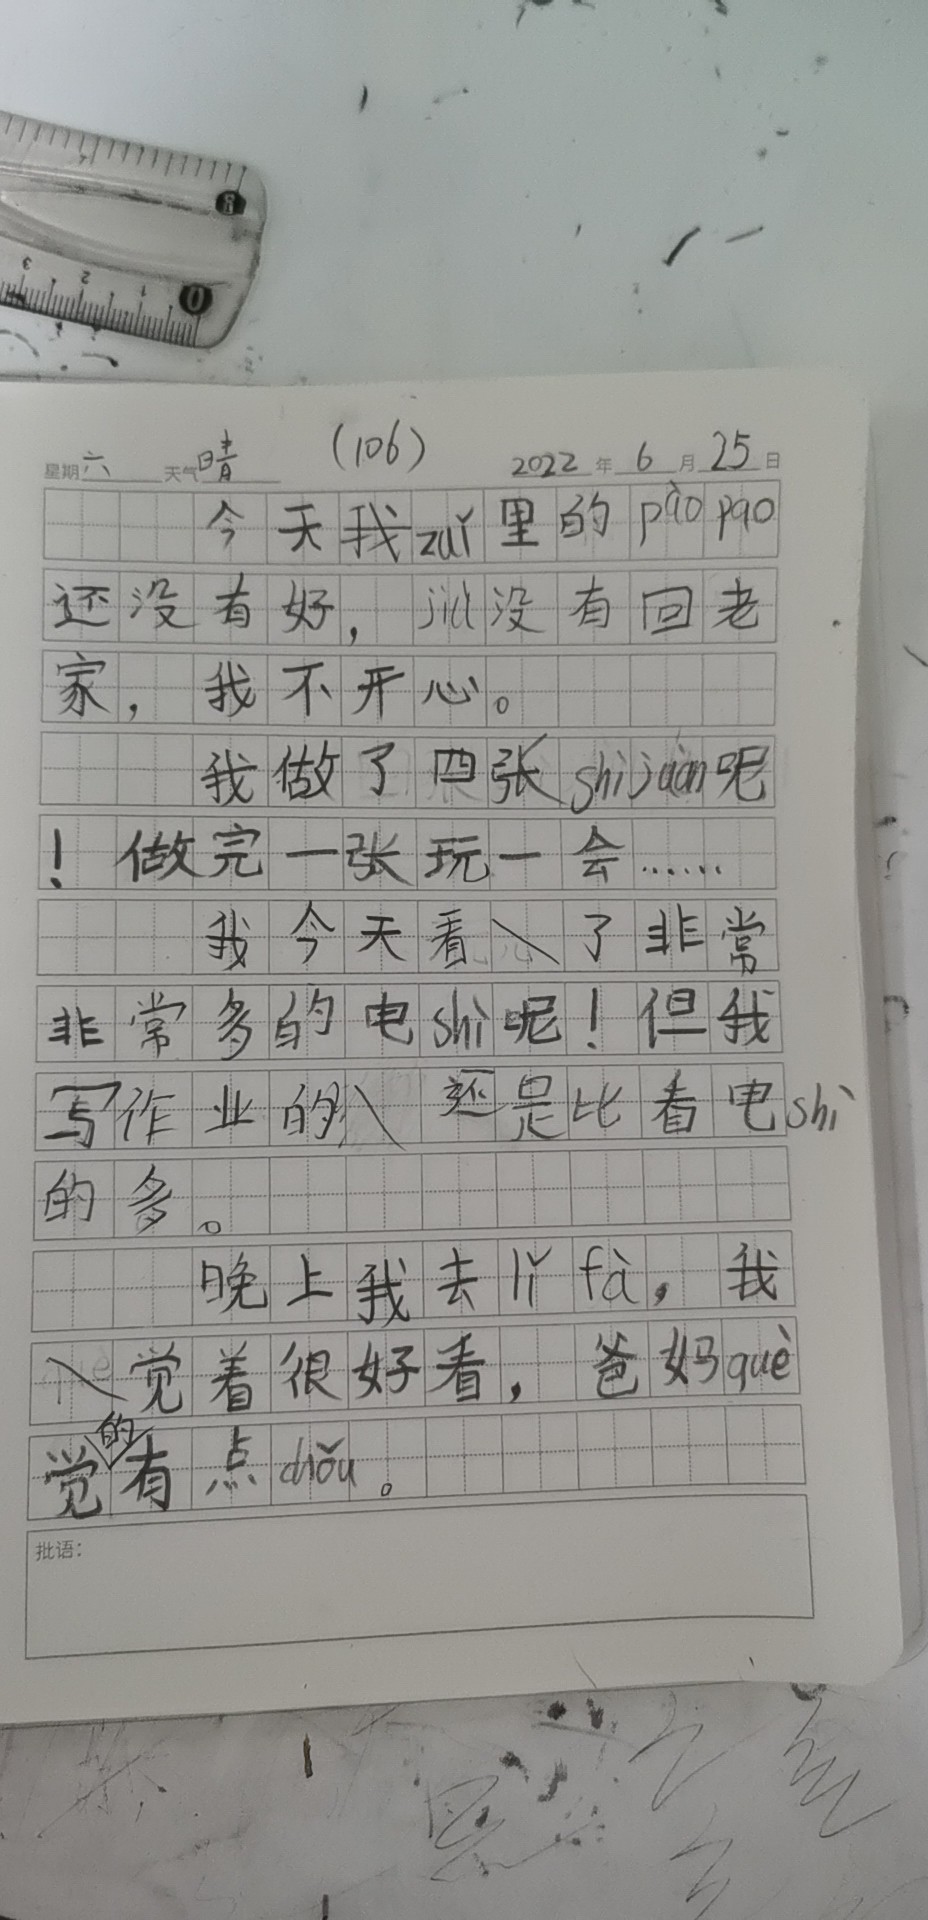 3 2 1 0
(106)
星期六 天气晴 2022年6月25日
今天我zuǐ里的pàopao
还没有好，jiù没有回老
家，我不开心。
我做了四张shìjuàn呢
！做完一张玩一会……
我今天看了非常
非常多的电shì呢！但我
写作业的 还是比看电shì
的多。
晚上我去lǐfà，我
觉着很好看，爸妈què
觉的有点chǒu。
批语：